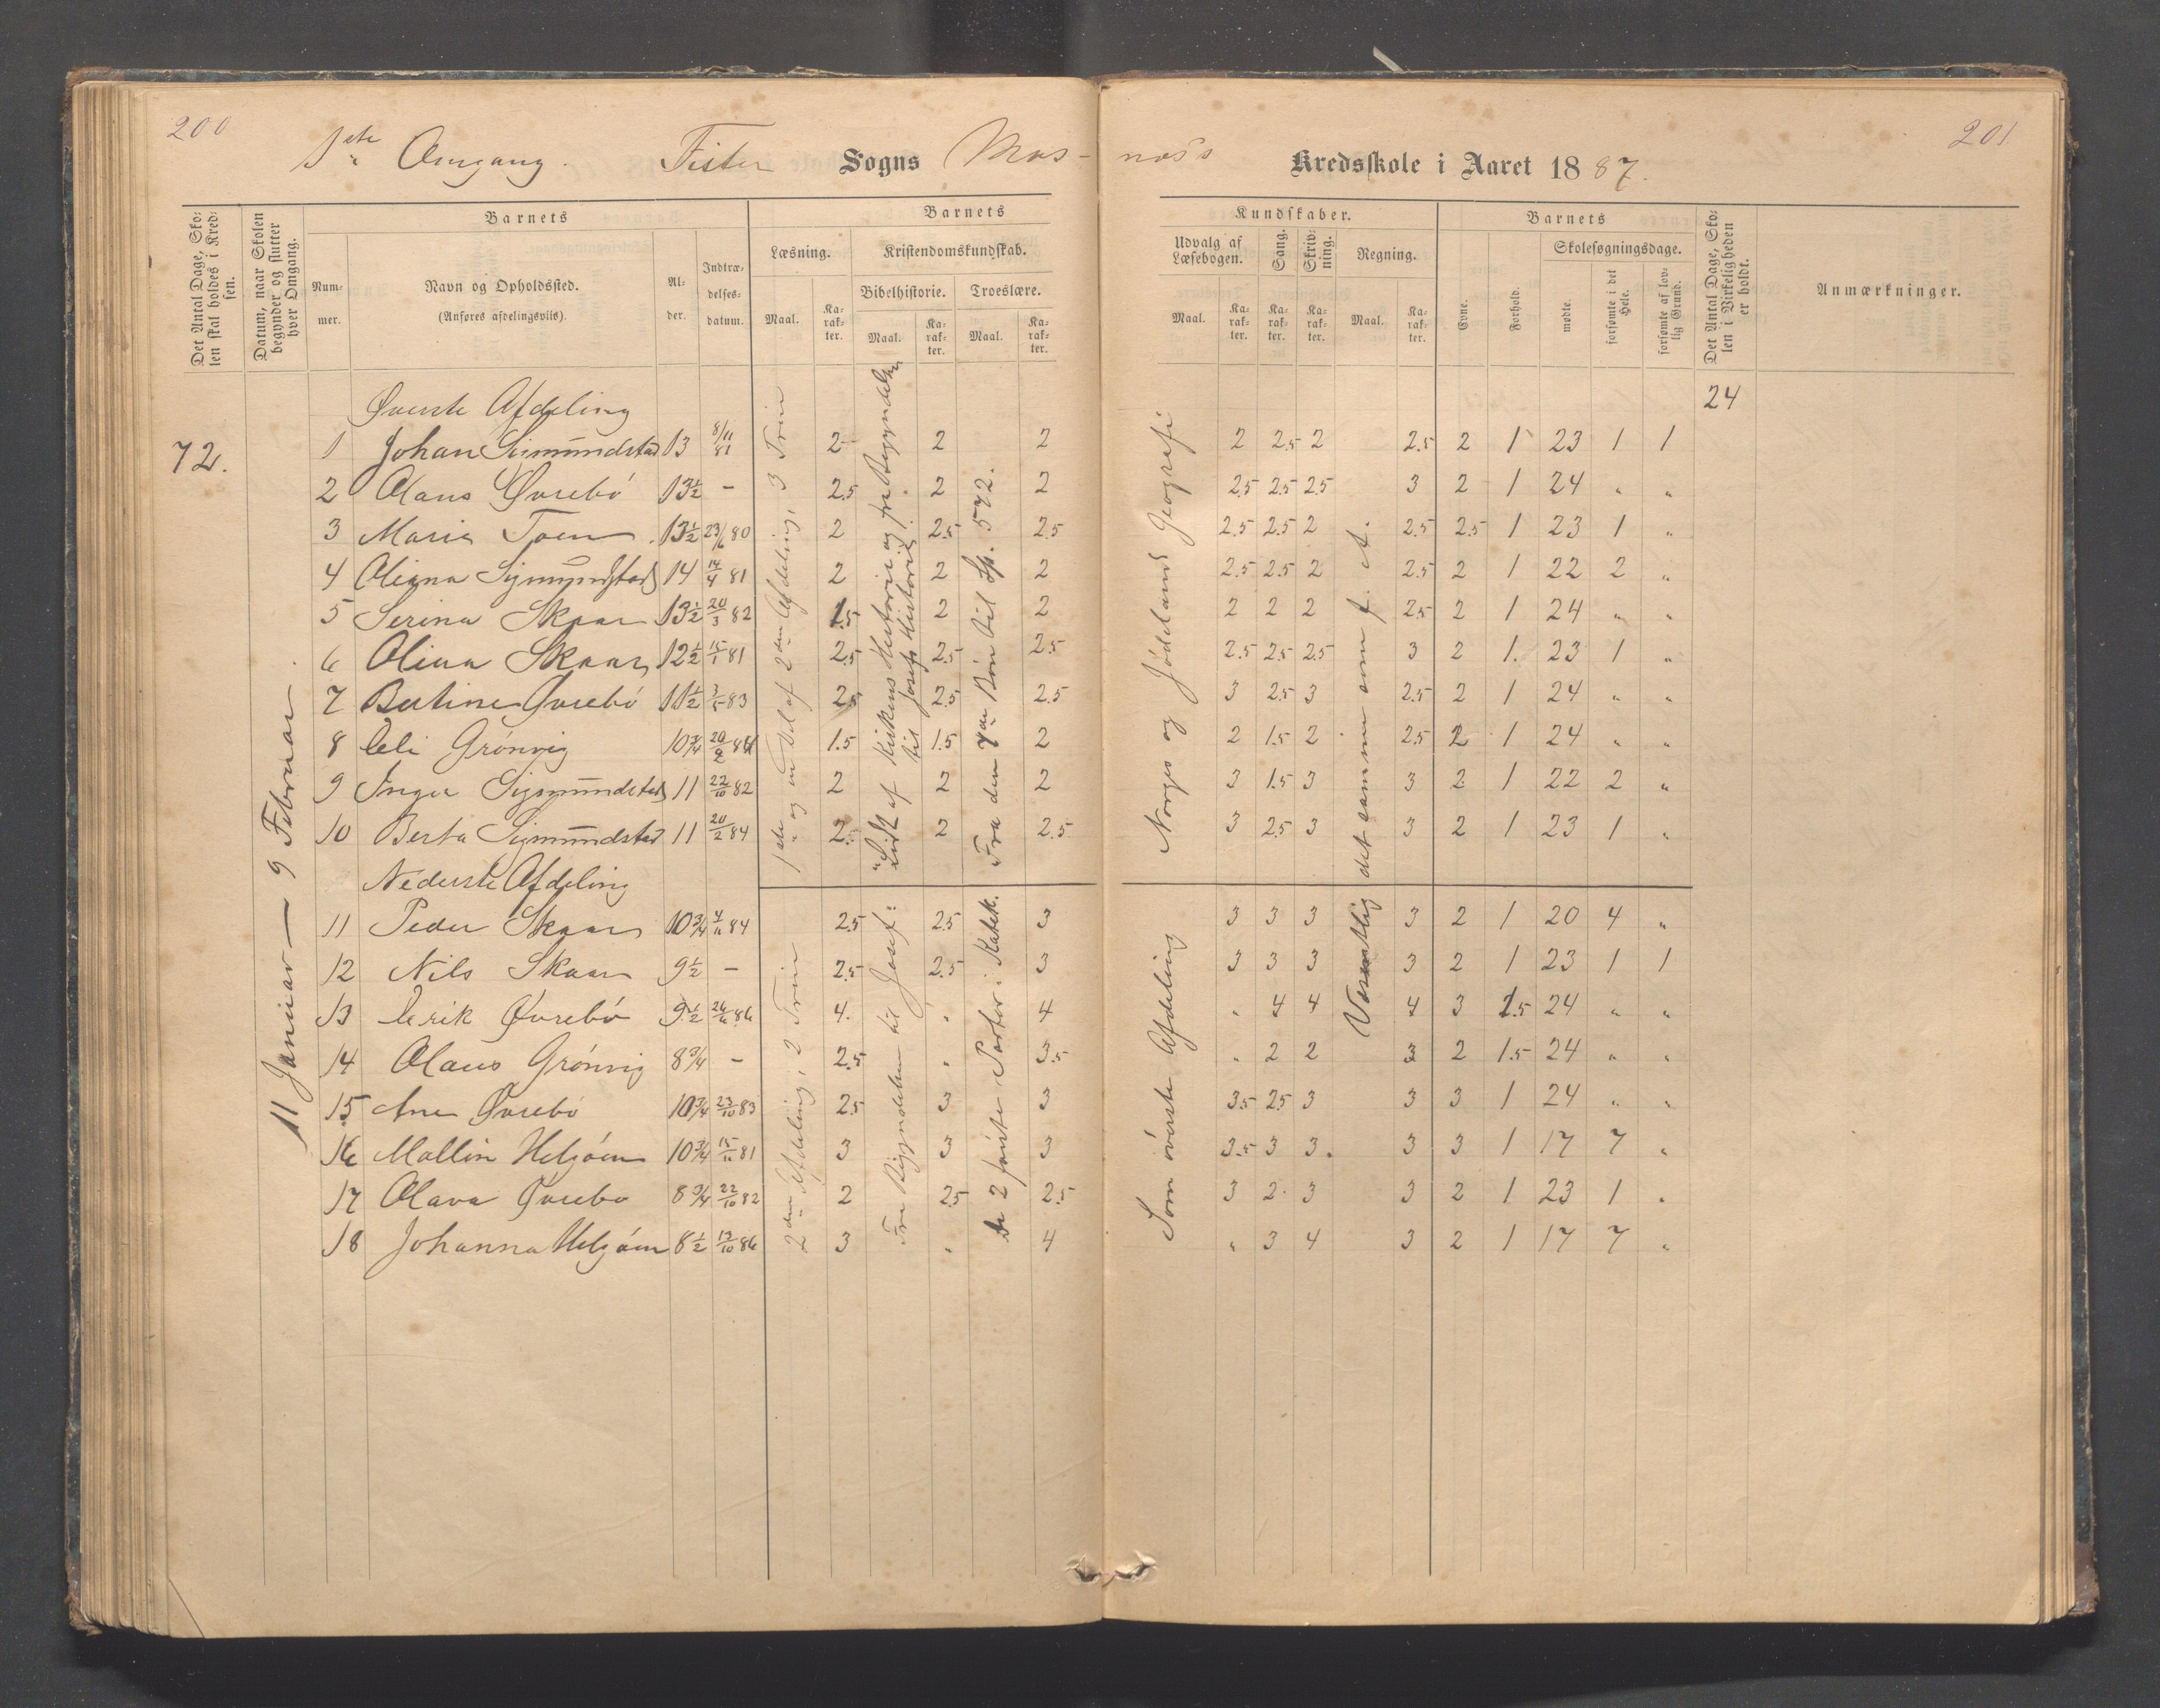 200
201.
1ste Omgang. Fister Sogns Mos-
nøs's Kredsskole i Aaret 1887.
Det Antal Dage, Skolen skal holdes i Kredsen.
Datum, naar Skolen begynder og slutter hver Omgang.
Barnets
Nummer.
Navn og Opholdssted.
(Anføres afdelingsvis).
Alder.
Indtrædelsesdatum.
Barnets
Læsning.
Maal.
Karakter.
Kristendomskundskab.
Bibelhistorie.
Maal.
Karakter.
Troeslære.
Maal.
Karakter.
Kundskaber.
Udvalg af Læsebogen.
Maal.
Karakter.
Sang.
Karakter.
Skrivning.
Karakter.
Regning.
Maal.
Karakter.
Barnets
Evne.
Forhold.
Skolesøgningsdage.
mødte.
forsømte i det Hele.
forsømte af lovlig Grund.
Det Antal Dage, Skolen i Virkeligheden er holdt.
Anmærkninger.
72.
11 Januar — 9 Februar.
24
Øverste Afdeling
1ste og en Del af 2den Afdeling, 3 Trin
Lidt af Kirkens Historie og fra Begyndelsen til Josefs Historie
Fra den 7de Bøn til Sp. 572.
Norges og Jødeland Geografi
Væsentlig det samme som f. A.
1 Johan Sigmundstad 13 8/11 81 2 2 2 2 2.5 2 2.5 2 1 23 1 1
2 Olaus Øvrebø 13½ - 2.5 2 2 2.5 2.5 2.5 3 2 1 24 " "
3 Maria Toen 13½ 23/6 80 2 2.5 2.5 2.5 2.5 2 2.5 2.5 1 23 1 "
4 Oliana Sigmundstad 14 14/4 81 2 2 2 2.5 2.5 2 2.5 2 1 22 2 "
5 Serina Skaar 13½ 20/3 82 1.5 2 2 2 2 2 2.5 2 1 24 " "
6 Olina Skaar 12½ 15/1 81 2.5 2.5 2.5 2.5 2.5 2.5 3 2 1 23 1 "
7 Bertine Øvrebø 11½ 3/5 83 2.5 2.5 2.5 3 2.5 3 2.5 2 1 24 " "
8 Eli Grønvig 10¾ 20/2 84 1.5 1.5 2 2 1.5 2 2.5 2 1 24 " "
9 Inger Sigmundstad 11 22/10 82 2 2 2 3 1.5 3 3 2 1 22 2 "
10 Berta Sigmundstad 11 20/2 84 2.5 2 2.5 3 2.5 3 3 2 1 23 1 "
Nederste Afdeling
2den Afdeling, 2 Trin
Fra Begyndelsen til Josef:
De 2 første Parter i Katek.
Som øverste Afdeling
11 Peder Skaar 10¾ 4/11 84 2.5 2.5 3 3 3 3 3 2 1 20 4 "
12 Nils Skaar 9½ - 2.5 2.5 3 3 3 3 3 2 1 23 1 1
13 Erik Øvrebø 9½ 26/6 86 4 " 4 " 4 4 4 3 1.5 24 " "
14 Olaus Grønvig 8¾ - 2.5 " 3.5 " 2 2 3 2 1.5 24 " "
15 Ane Øvrebø 10¾ 23/10 83 2.5 3 3 3.5 2.5 3 3 3 1 24 " "
16 Mallin Helgøen 10¾ 15/11 81 3 3 3 3.5 3 3 3 3 1 17 7 "
17 Olava Øvrebø 8¾ 22/10 82 2 2.5 2.5 3 2 3 3 2 1 23 1 "
18 Johanna Helgøen 8½ 19/10 86 3 " 4 " 3 4 3 2 1 17 7 "